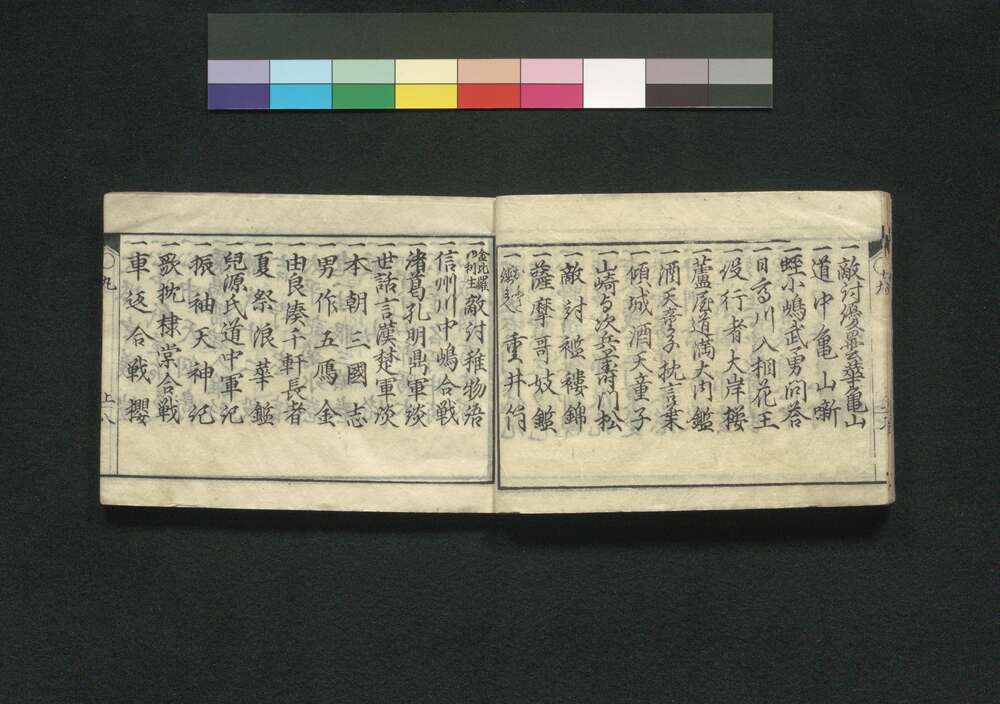 一敵討優曇華亀山
一道中亀山噺
一蛭小嶋武勇問答
一日高川入相花王
一役行者大峰桜
一蘆屋道満大内鑑
一酒天童子枕言葉
一傾城酒天童子
一山崎与次兵衛寿門松
一敵討襤褸錦
一薩摩哥妓鑑
一重井筒
一金比羅御利生敵討稚物語
一信州川中嶋合戦
一諸葛孔明鼎軍談
一世話言漢楚軍談
一本朝三國志
一男作五雁金
一由良湊千軒長者
一夏祭浪華鑑
一兒源氏道中軍記
一振袖天神記
一歌枕棣棠合戦
一車返合戦櫻